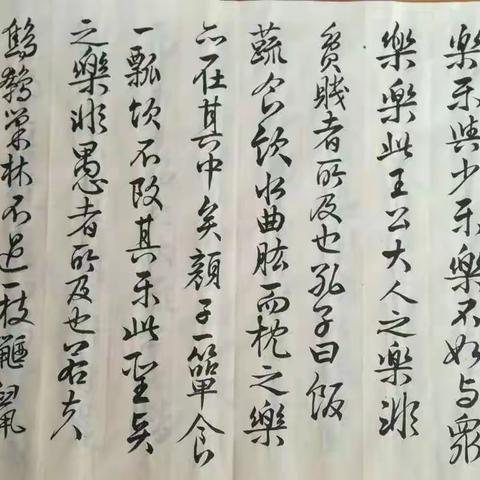 樂乐與少乐樂不如与眾
樂樂此王公大人之樂非
貧賤者所及也孔子曰飯
蔬食飲水曲肱而枕之樂
亦在其中矣顏子一簞食
一瓢飲不改其乐此聖贤
之樂非愚者所及也若夫
鷦鷯巢林不過一枝鼴鼠